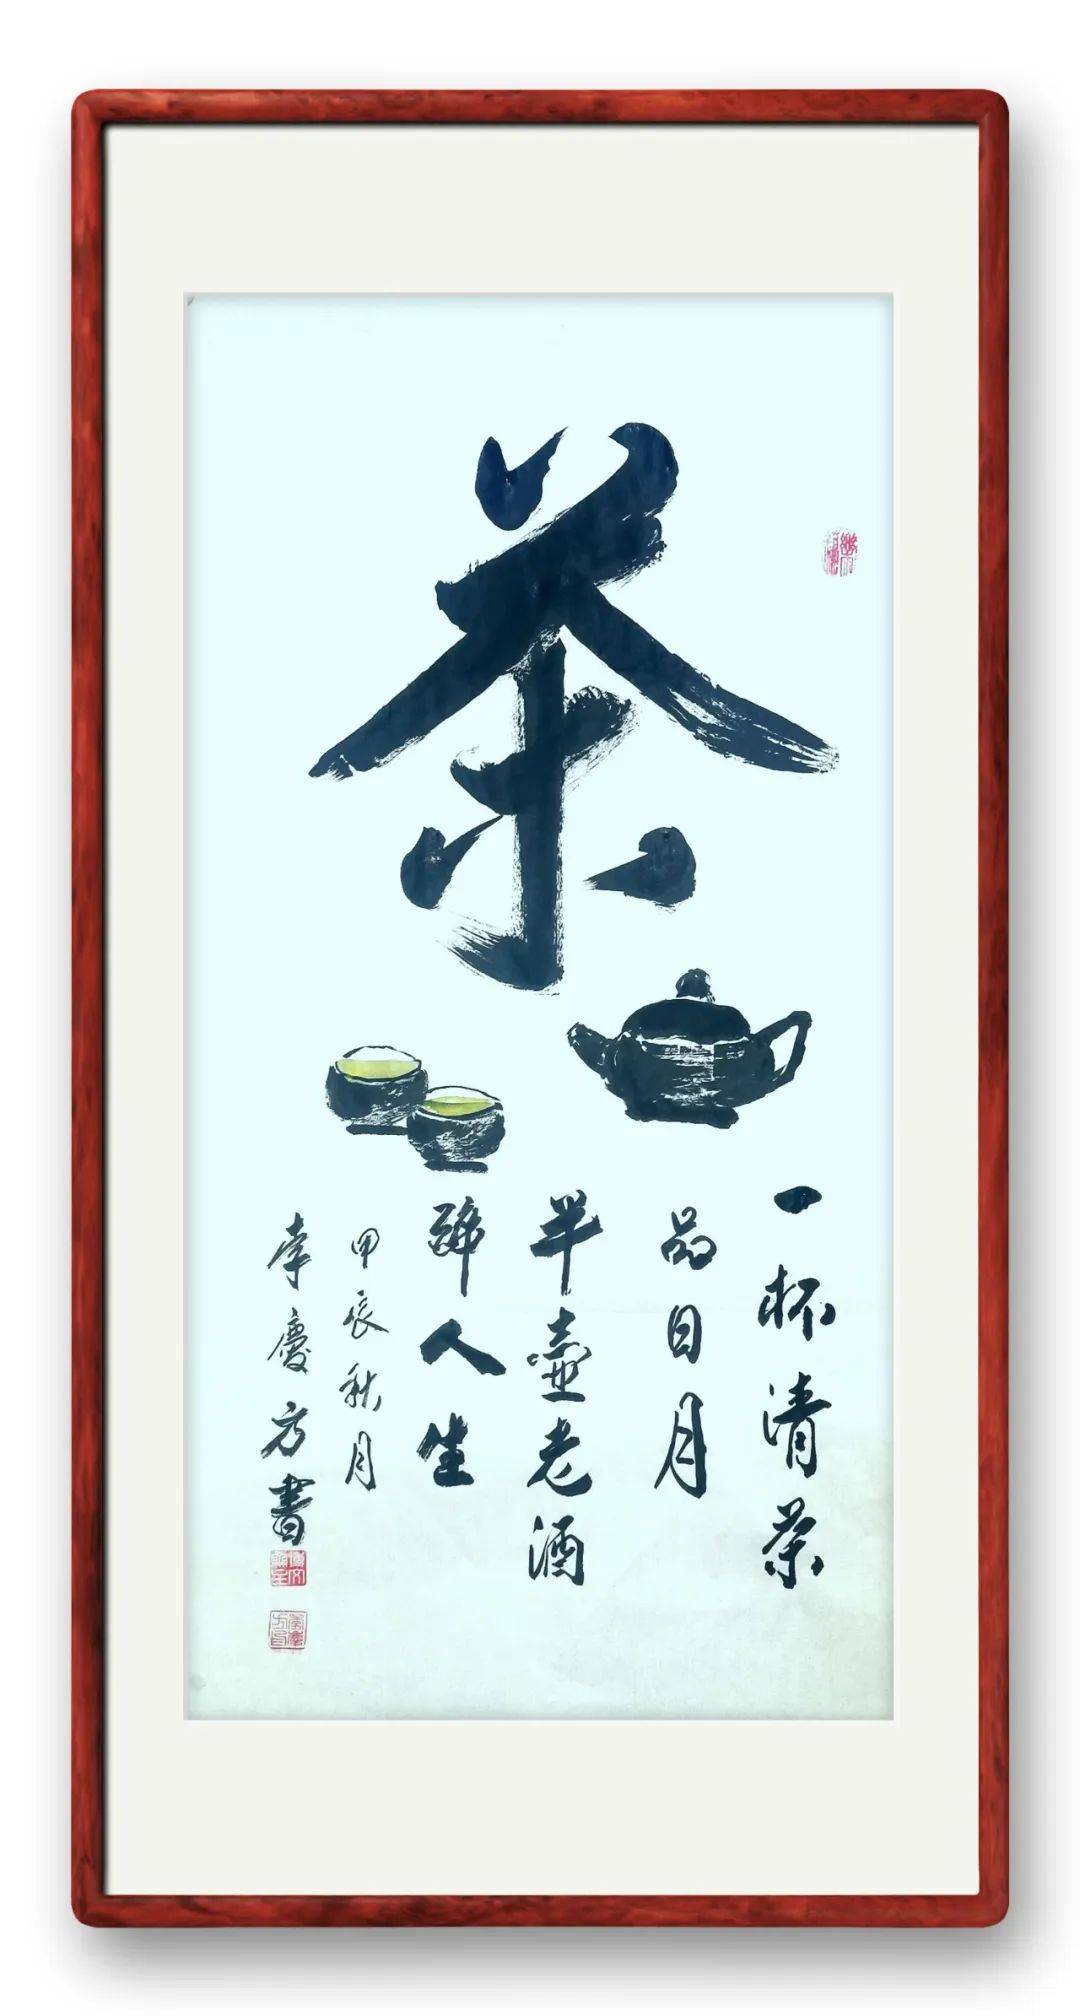 茶
一杯清茶
品日月
半壶老酒
醉人生
甲辰秋月
李慶方書